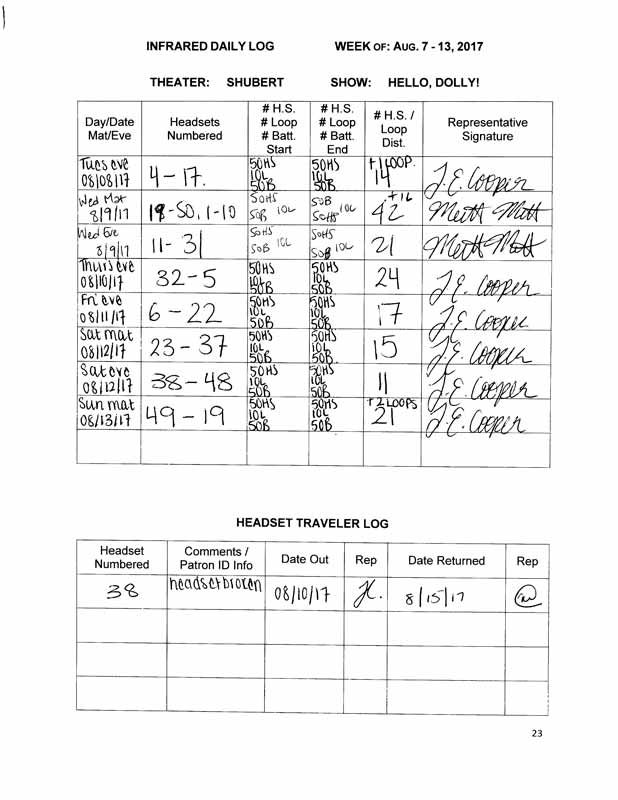 INFRARED DAILY LOG WEEK OF: AUG. 7 - 13, 2017
THEATER: SHUBERT SHOW: HELLO, DOLLY!
Day/Date Mat/Eve Headsets Numbered # H.S. # Loop # Batt. Start # H.S. # Loop # Batt. End # H.S. / Loop Dist. Representative Signature
Tues eve 08/08/17 4 - 17. 50HS 10L 50B 50HS 10L 50B +1 LOOP. 14 J.E. Cooper
Wed Mat 8/9/17 19-50, 1-10 50HS 50B 10L 50B 50HS 10L +1L 42
Wed Eve 8/9/17 11- 31 50HS 50B 10L 50HS 50B 10L 21
Thurs eve 08/10/17 32 - 5 50HS 10L 50B 50HS 10L 50B 24 J.E. Cooper
Fri eve 08/11/17 6 - 22 50HS 10L 50B 50HS 10L 50B 17 J.E. Cooper
Sat mat 08/12/17 23 - 37 50HS 10L 50B 50HS 10L 50B 15 J.E. Cooper
Sat eve 08/12/17 38 - 48 50HS 10L 50B 50HS 10L 50B 11 J.E. Cooper
Sun mat 08/13/17 49 - 19 50HS 10L 50B 50HS 10L 50B +2 LOOPS 21 J.E. Cooper
HEADSET TRAVELER LOG
Headset Numbered Comments / Patron ID Info Date Out Rep Date Returned Rep
38 headset broken 08/10/17 8/15/17
23